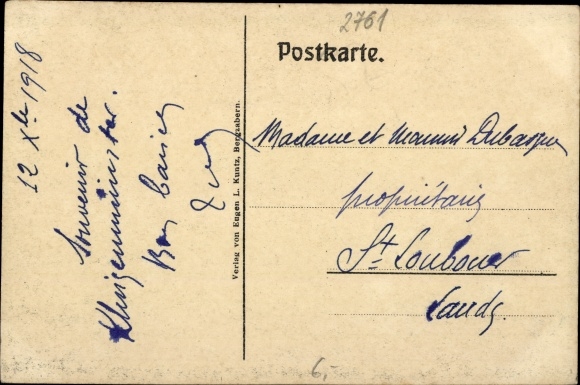 2761
Postkarte.
12 Xbre 1918
Souvenir de
Klingenmünster.
Bons baisers
Verlag von Eugen L. Kuntz, Bergzabern.
Madame et
propriétaire
St Loubouer
Landes.
6.